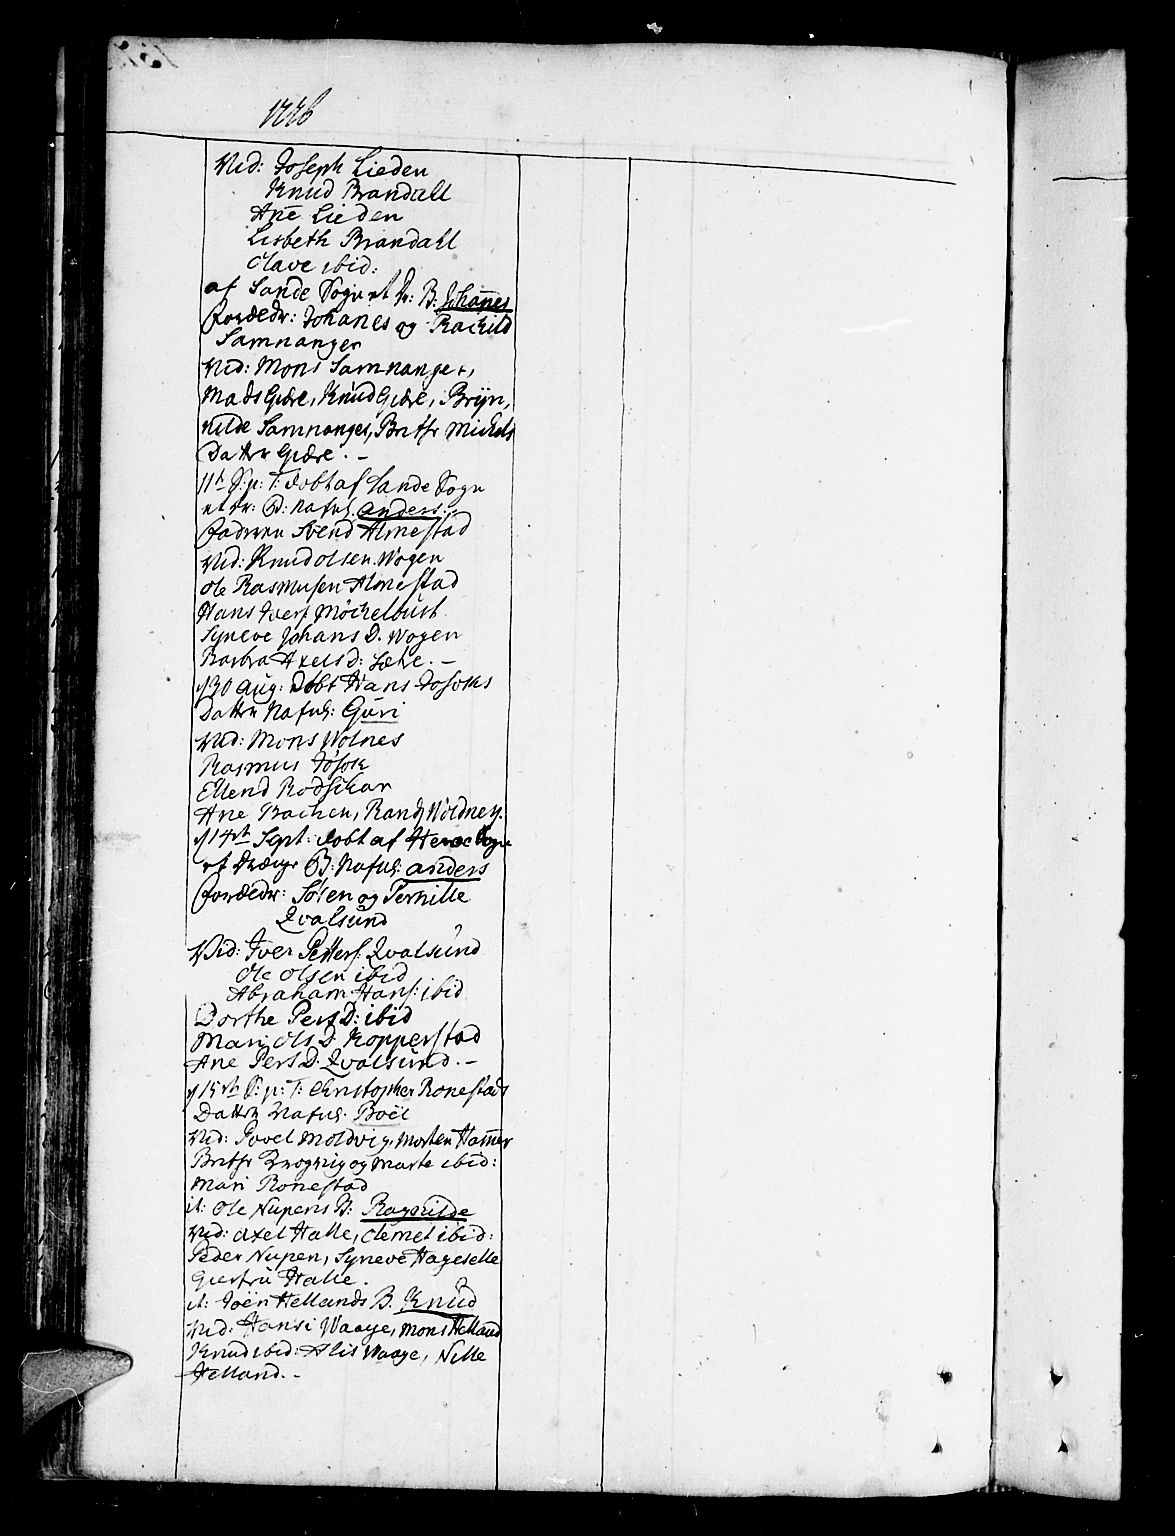 1776
Vid: Joseph Lieden
Knud Brandall
Ane Lieden
Lisbeth Brandahl
Olave ibid:
af Sande Sogn et Dr: B: Johannes
Forældr: Johanes og Rachild
Samnanger
Vid: Mons Samnanger,
Mads Giære, Knud Giære, Bryn,
hilde Samnanger, Brithe Michels
Datter Giære. -
S: p: T: döbt af Sande Sogn
et Dr: B: nafnl: anders.
Faderen Svend Almestad
Vid: Knud olsen Wogen
Ole Rasmusen Almestad
Hans Ivers Möchelbust
Syneve Johans D. Wogen
Barbra Axels d: Sætre. -
d 30 Aug: döbt Hans Josoks
Datter Nafnl: Guri
Vid: Mons Wolnes
Rasmus Josok
Ellend Rodschar
Ane Bachen, Rand Woldnes.
d 14de Sept: döbt af Heröe Sogn
et Drænge B: Nafnl: anders
Forældr: Sören og Pernille
Qvalsund
Vid: Iver Petters: Qvalsund
Ole Olsen ibid
Abraham Hans: ibid
Dorthe Pers D: ibid
Mari Ols D Kopperstad
Ane Pers D. Qvalsund. -
d 15de S: p: T: Christopher Ronestads
Datter Nafnl: Boël
Vid: Povel Moldvig, Morten Hamer
Brithe og Marte ibid:
Mari Ronestad
it: Ole Nupens B: Ragnilde
Vid: Axel Halle, Clemet ibid:
Peder Nupen, Syneve Hageselle
Giertru Halle.
it: Joën Hellands B. Knud
Vid: Hans i Waage, Mons Helland
Knud ibid: Alis Waage, Nille
Helland. -